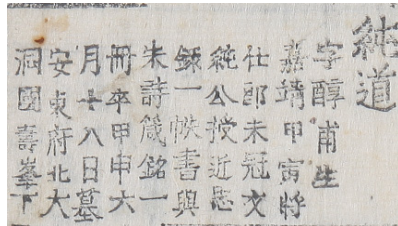 純道
字醇甫生
嘉靖甲寅將
仕郎未冠文
純公授近思
錄一帙書與
朱詩箴銘一
冊卒甲申六
月十八日墓
安東府北大
洞國壽峯下